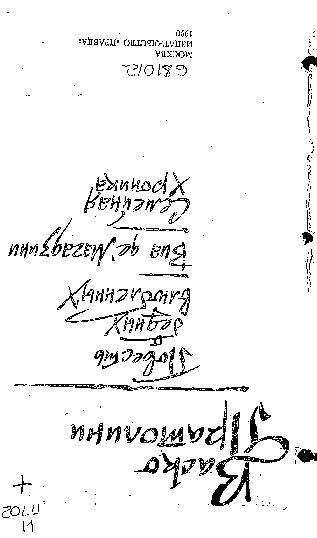 И
П702
+
Васко
Пратолини
Повесть
о бедных
влюбленных
Виа де'Магадзини
Семейная
хроника
G81022
МОСКВА
ИЗДАТЕЛЬСТВО «ПРАВДА»
1990